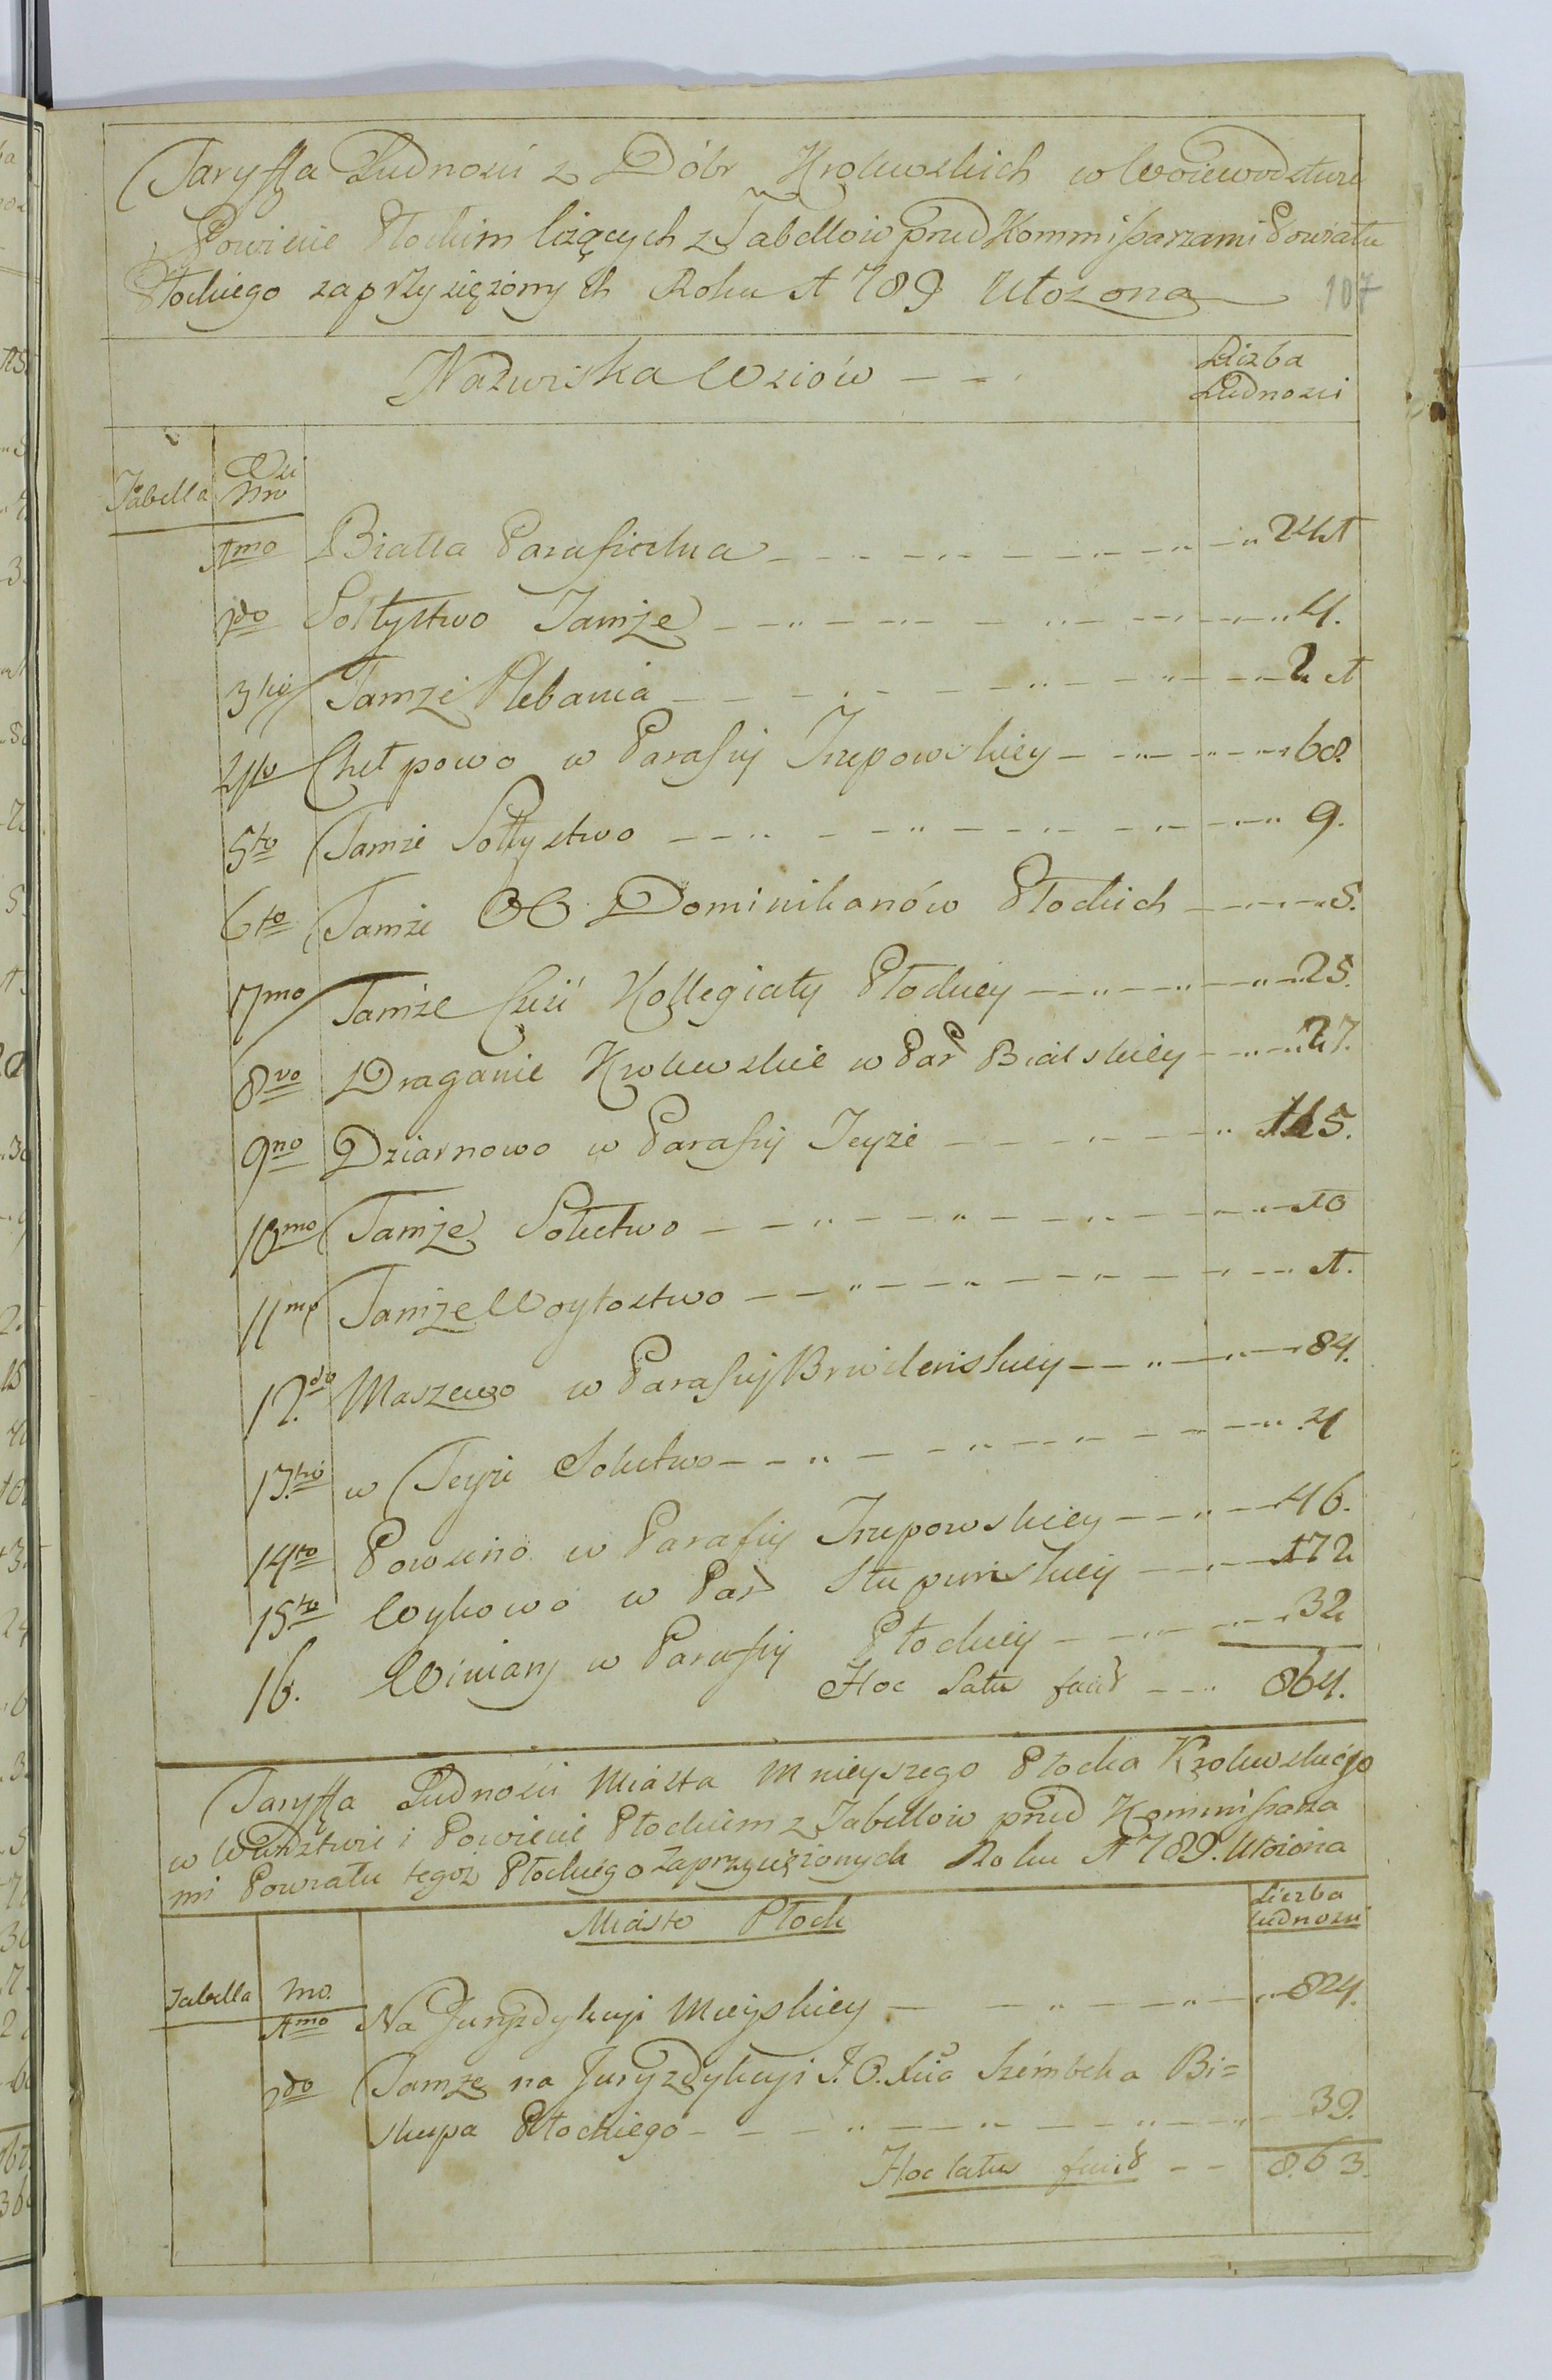 Taryffa Ludnosci z Dóbr Krolewskich w Woiewodztwie
Powiecie Płockim leżących z Tabellow przed Kommissarzami Powiatu
Płockiego zaprzysiężonych Roku 1789 Ułozona
107
Nazwiska Wsiów - - -
Liczba
Ludnosci
Tabella Wsi
Nro
1mo Biała Parafialna 241
2do Sołtystwo Tamże 4.
3tio Tamże Plebania 21
4to Chełpowo w Parafij Trzepowskiey 68.
5to Tamże Sołtystwo 9.
6to Tamże OO Dominikanów Płockich 5.
7mo Tamże Częśc Kollegiaty Płockiey 25.
8vo Draganie Krolewskie w Par Bialskiey 27.
9no Dziarnowo w Parafij Teyże 115.
10mo Tamże Sołectwo 10
11mo Tamże Woytostwo 1.
12do Maszewo w Parafij Brwilenskiey 84.
13tio w Teyże Sołectwo 4
14to Powsino w Parafij Trzepowskiey 46.
15to Wykowo w Par Słupinskiey 172
16. Winiary w Parafij Płockiey 32
Hoc Latus facit 864.
Taryffa Ludnosci Miasta Mnieyszego Płocka Krolewskiego
w Wdztwie i Powiecie Płockiem z Tabellow przed Kommissarza
mi Powiatu tegoż Płockiego zaprzysiężonych Roku 1789. Ułożona
Miasto Płock
Liczba
ludnosci
Tabella Nro.
1mo Na Juryzdykcyi Mieyskiey 824.
2do Tamże na Juryzdykcyi J. O. Xcia Szembeka Bi=
skupa Płockiego 39.
Hoc latus facit 863.